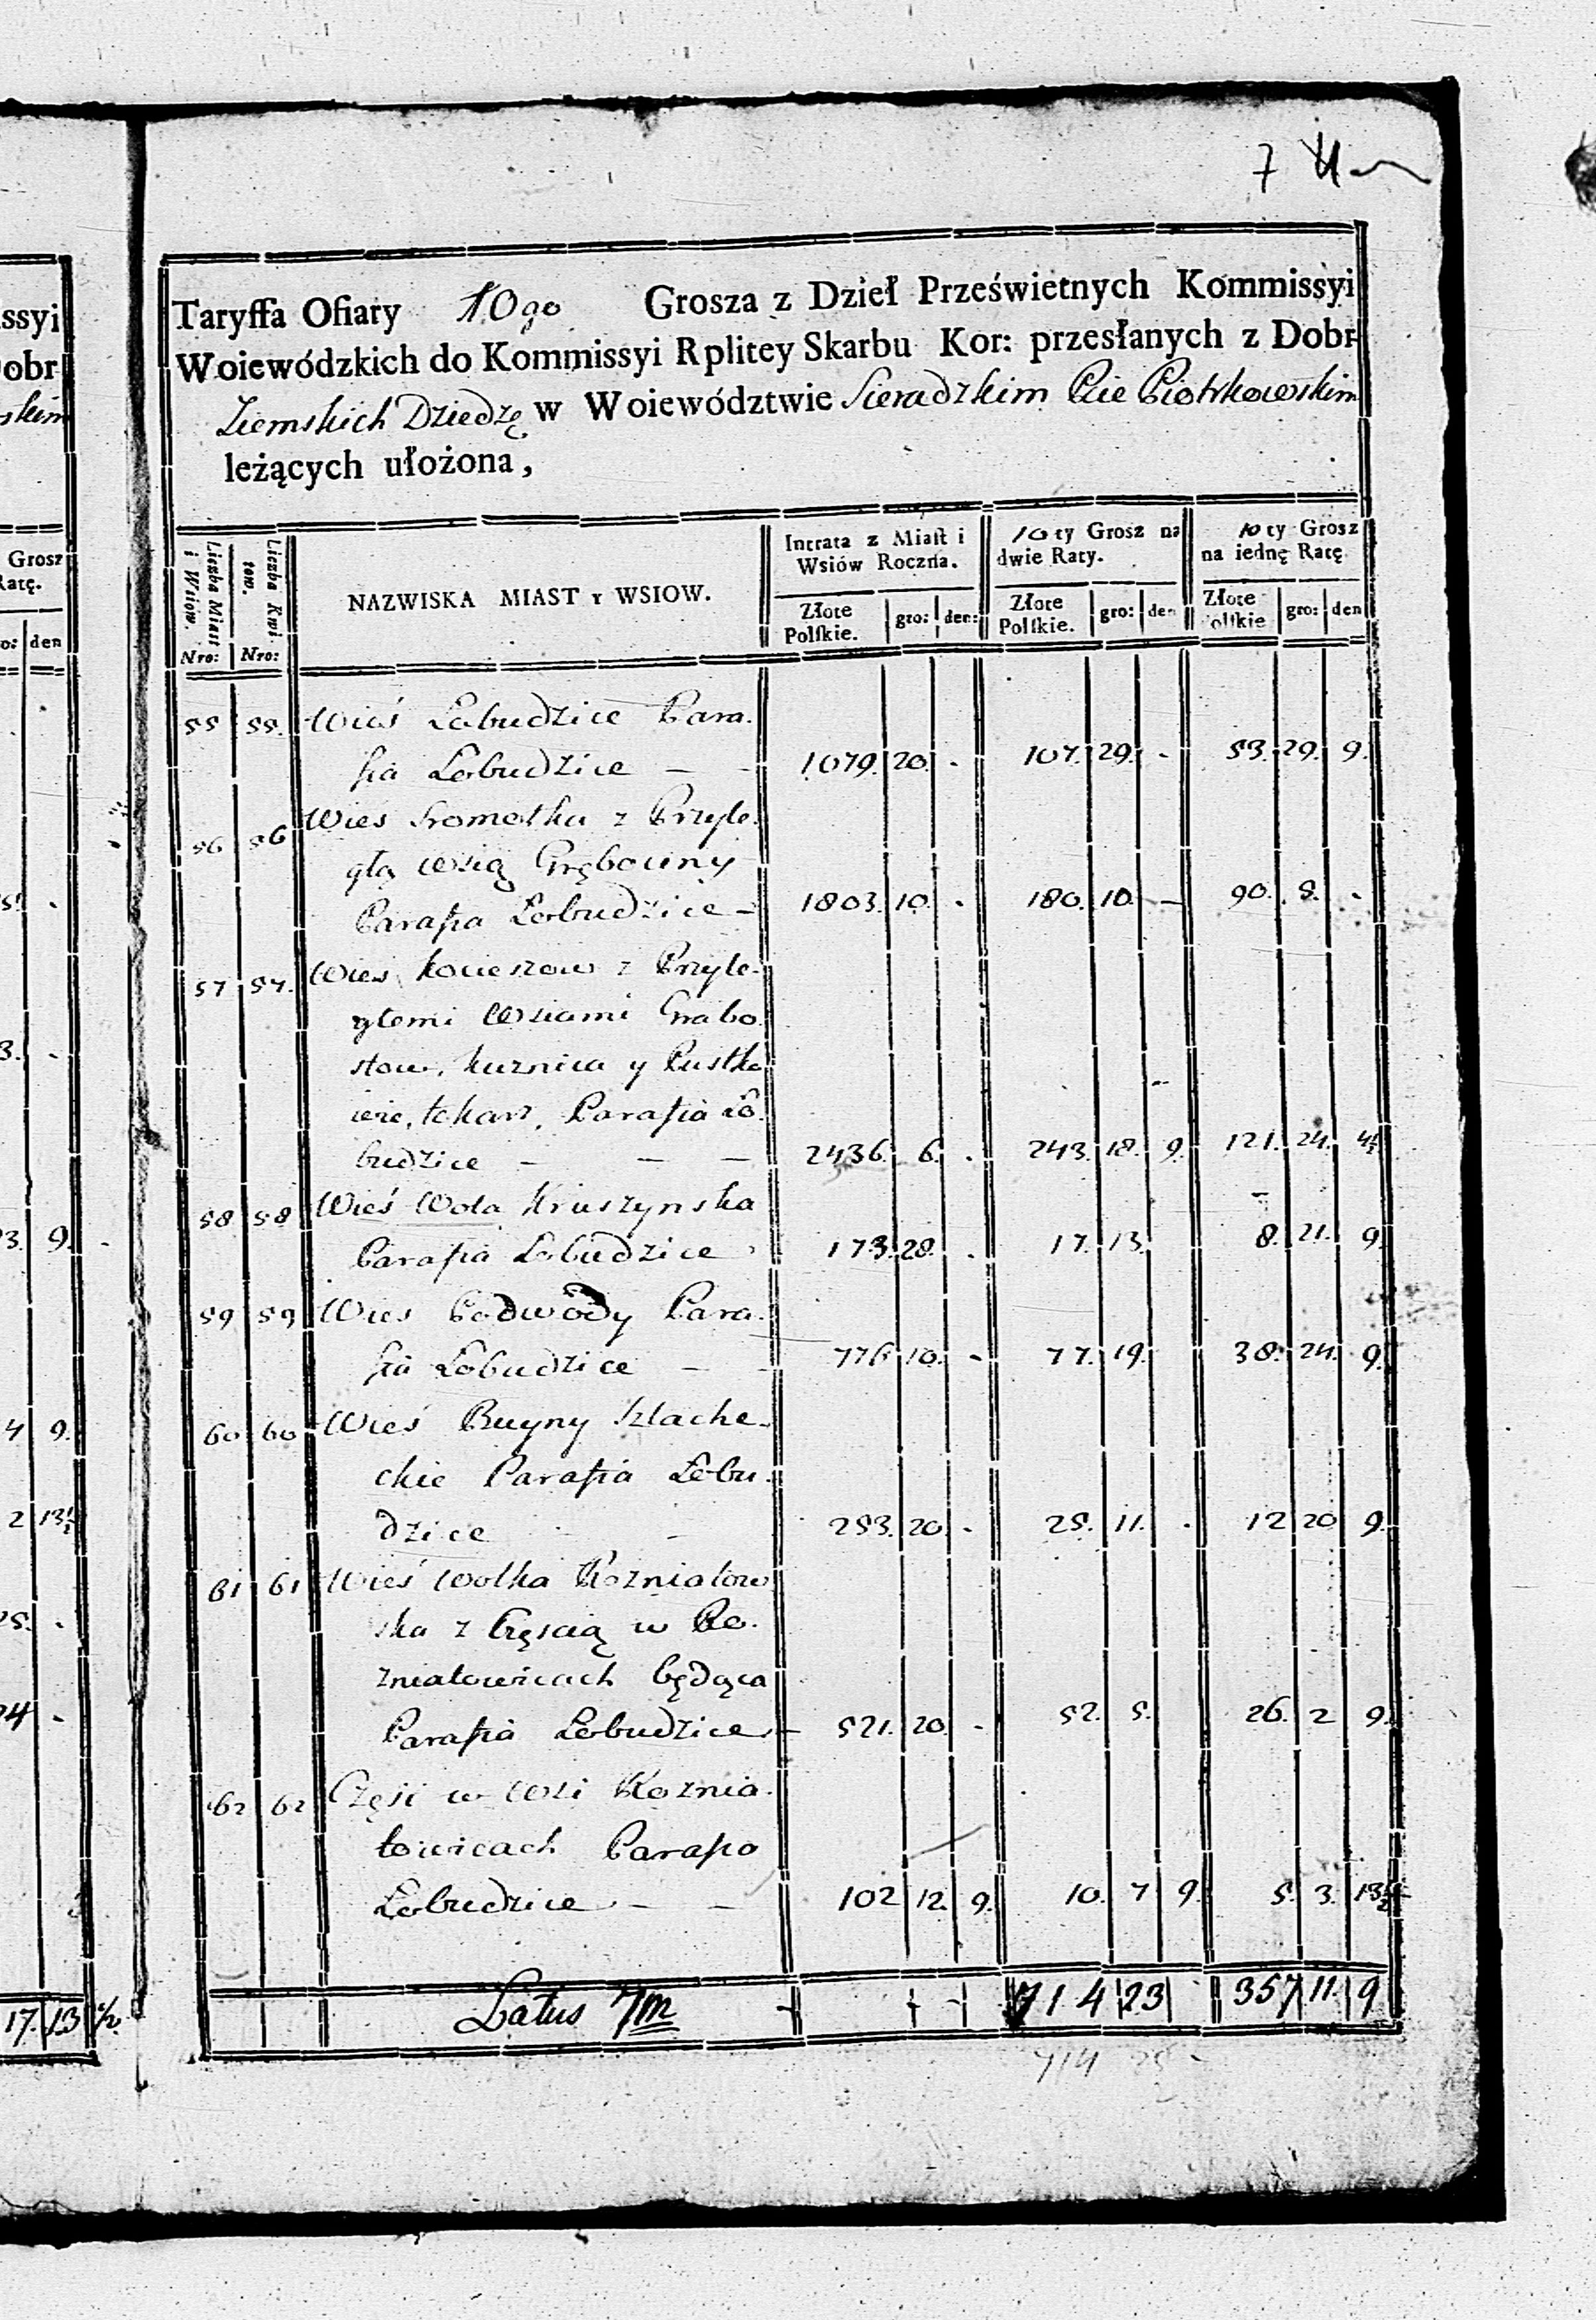 7
Taryffa Ofiary 10go Grosza z Dzieł Prześwietnych Kommissyi
Woiewódzkich do Kommissyi Rplitey Skarbu Kor: przesłanych z Dobr
Ziemskich Dziedzę w Woiewództwie Sieradzkim Pcie Piotrkowskim
leżących ułożona,
Liczba Miast i Wsiów. Nro:
Liczba Kwitow. Nro:
NAZWISKA MIAST y WSIOW.
Intrata z Miast i Wsiów Roczna.
10ty Grosz na dwie Raty.
10ty Grosz na iednę Ratę
Złote Polskie. gro: den: Złote Polskie. gro: den Złote Polskie gro: den
55 55. Wieś Łobudzice Para.
fia Łobudzice — — 1079. 20. - 107. 29. - 53. 29. 9.
56 56 Wieś Sromotka z Przyle.
głą wsią Grębociny
Parafia Łobudzice — 1803. 10. - 180. 10. — 90. 8. -
57 57. Wieś Kocieszow z Przyle.
głemi Wsiami Grabo.
stow, Kuznica y Pustko
wie, Tokarz, Parafia Ło.
budzice — — — 2436. 6. . 243. 18. 9. 121. 24. 4½
58 58 Wieś Wola Kruszynska
Parafia Łobudzice 173. 28. . 17. 13. 8. 21. 9.
59 59 Wies Podwody Para.
fia Łobudzice — — 776. 10. - 77. 19. 38. 24. 9.
60 60 Wieś Buyny Szlache.
ckie Parafia Łobu.
dzice 253. 20. . 25. 11. . 12 20 9.
61 61 Wieś Wolka Rozniatow
ska z Częscią w Ro.
zniatowicach będąca
Parafia Łobudzice — 521. 20. - 52. 5. 26. 2 9.
62 62 Część w Wsi Roznia.
towicach Parafia
Łobudzice — — 102 12. 9. 10. 7 9. 5. 3. 13½
Latus 714 23 357 11. 9
714 25 -